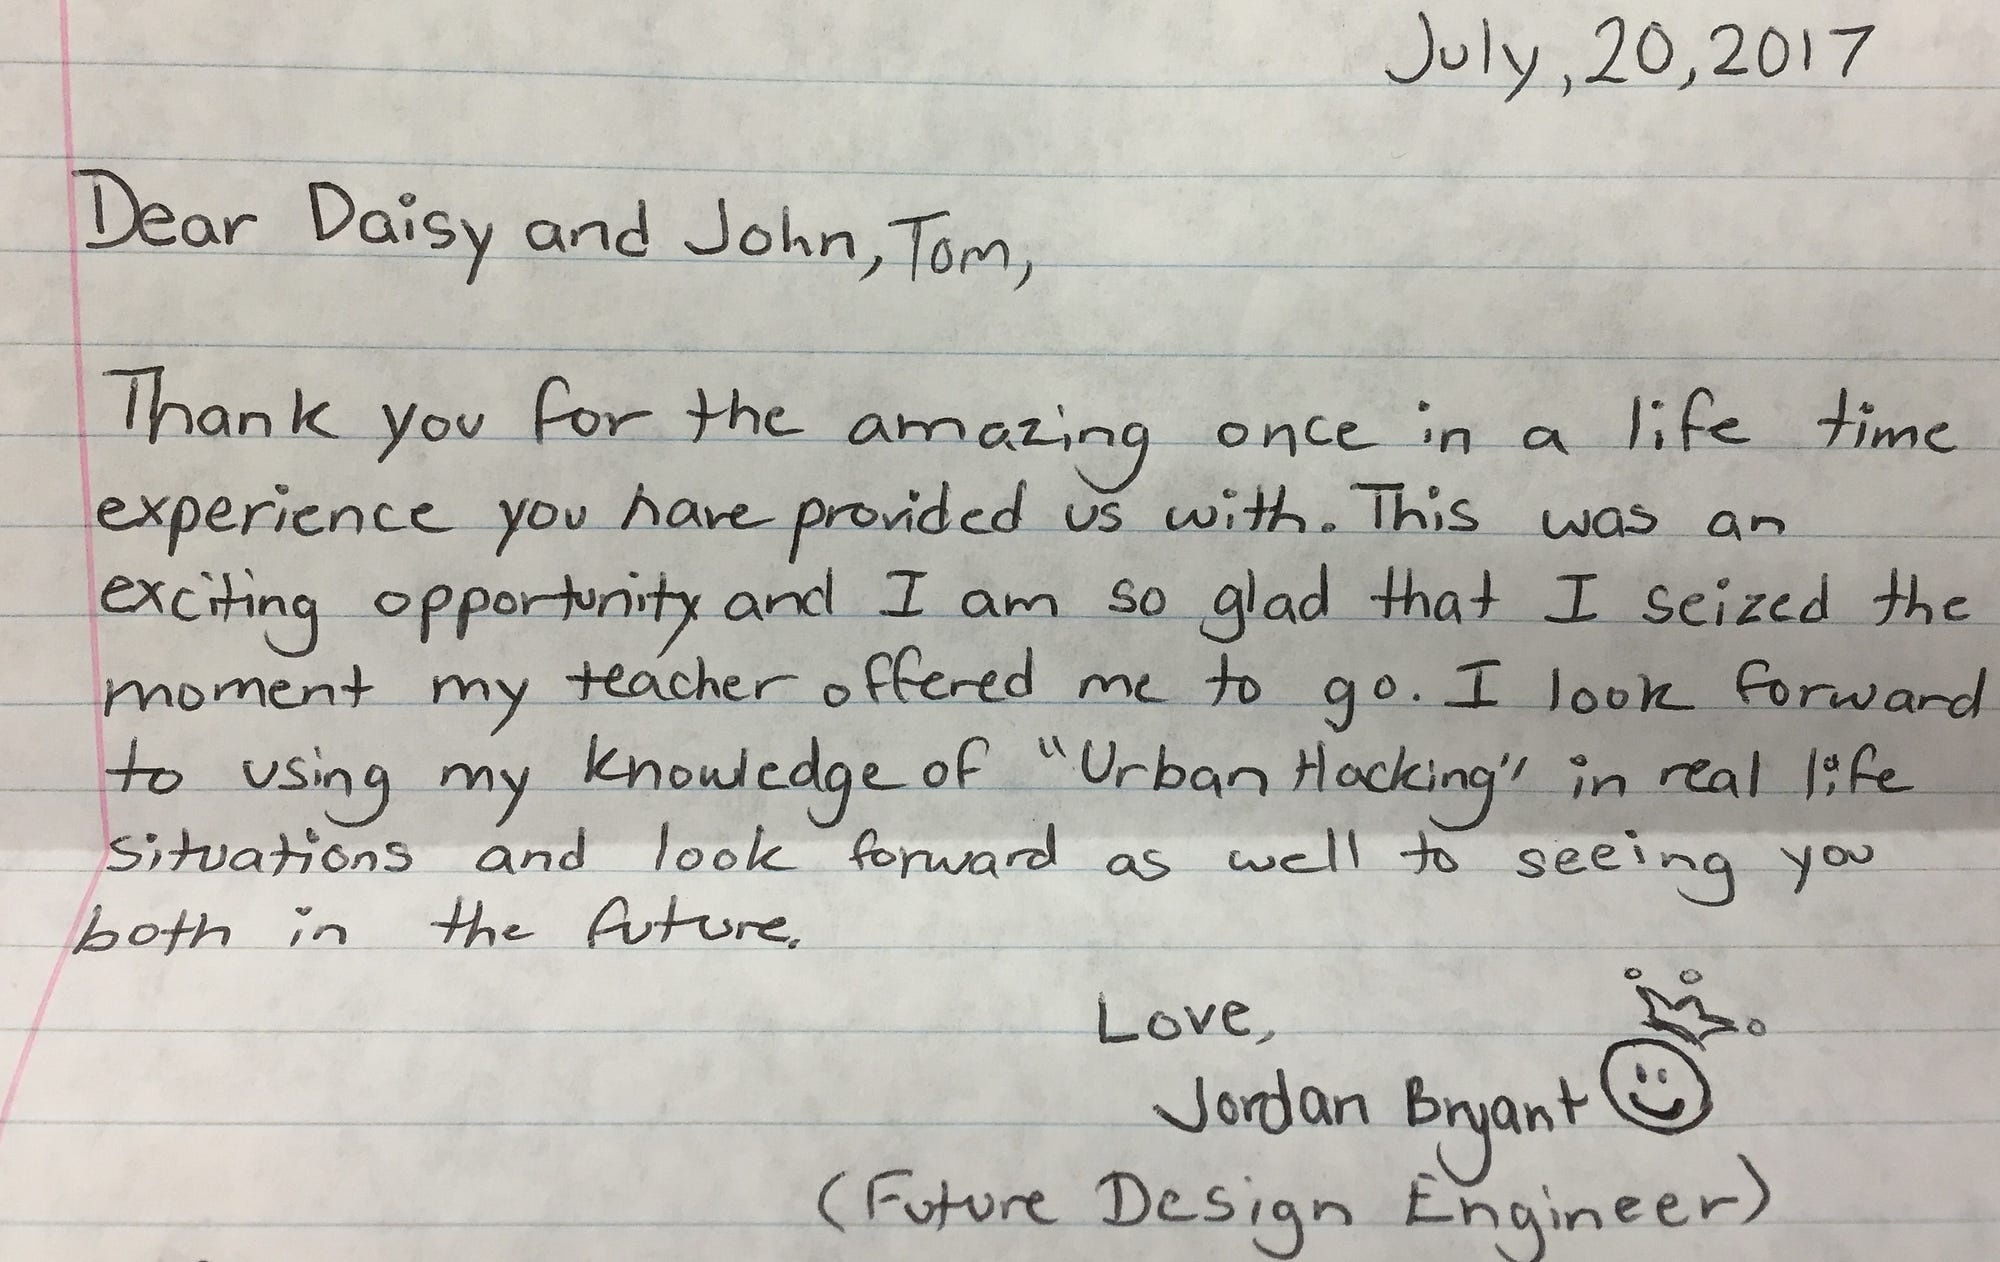 July, 20, 2017
Dear Daisy and John, Tom,
Thank you for the amazing once in a life time
experience you have provided us with. This was an
exciting opportunity and I am so glad that I seized the
moment my teacher offered me to go. I look forward
to using my knowledge of "Urban Hacking" in real life
situations and look forward as well to seeing you
both in the future.
Love,
Jordan Bryant
(Future Design Engineer)